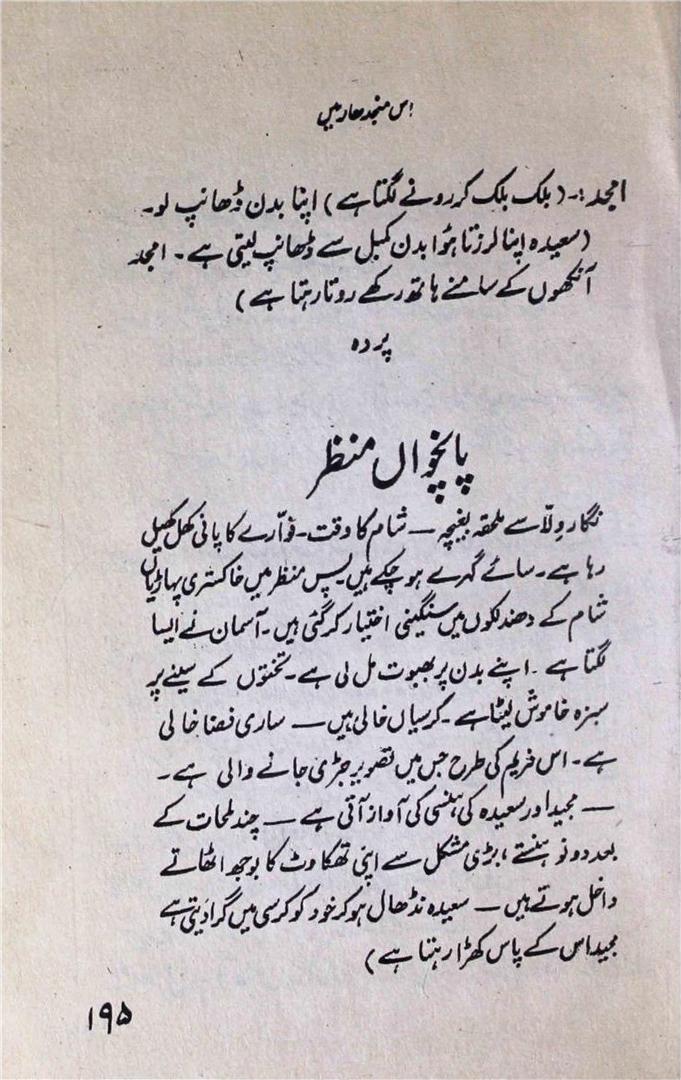 اِس منجدھار میں
امجد:۔ (بلک بلک کر رونے لگتا ہے) اپنا بدن ڈھانپ لو۔
(سعیدہ اپنا لرزتا ہُوا بدن کمبل سے ڈھانپ لیتی ہے۔ امجد
آنکھوں کے سامنے ہاتھ رکھے روتا رہتا ہے)
پردہ
پانچواں منظر
نگار وِلّا سے ملحقہ بغیچہ — شام کا وقت۔ فوّارے کا پانی کھل کھیل
رہا ہے۔ سائے گہرے ہو چکے ہیں پس منظر میں خاکستری پہاڑیاں
شام کے دھندلکوں میں سنگینی اختیار کر گئی ہیں۔ آسمان نے ایسا
لگتا ہے۔ اپنے بدن پر بھبوت مل لی ہے۔ تختوں کے سینے پر
سبزہ خاموش لیٹا ہے۔ کرسیاں خالی ہیں — ساری فضا خالی
ہے۔ اس فریم کی طرح جس میں تصویر جڑی جانے والی ہے۔
— مجید اور سعیدہ کی ہنسی کی آواز آتی ہے — چند لمحات کے
بعد دونو ہنستے، بڑی مشکل سے اپنی تھکاوٹ کا بوجھ اٹھاتے
داخل ہوتے ہیں — سعیدہ نڈھال ہو کر خود کو کرسی میں گرا دیتی ہے
مجید اس کے پاس کھڑا رہتا ہے)
۱۹۵